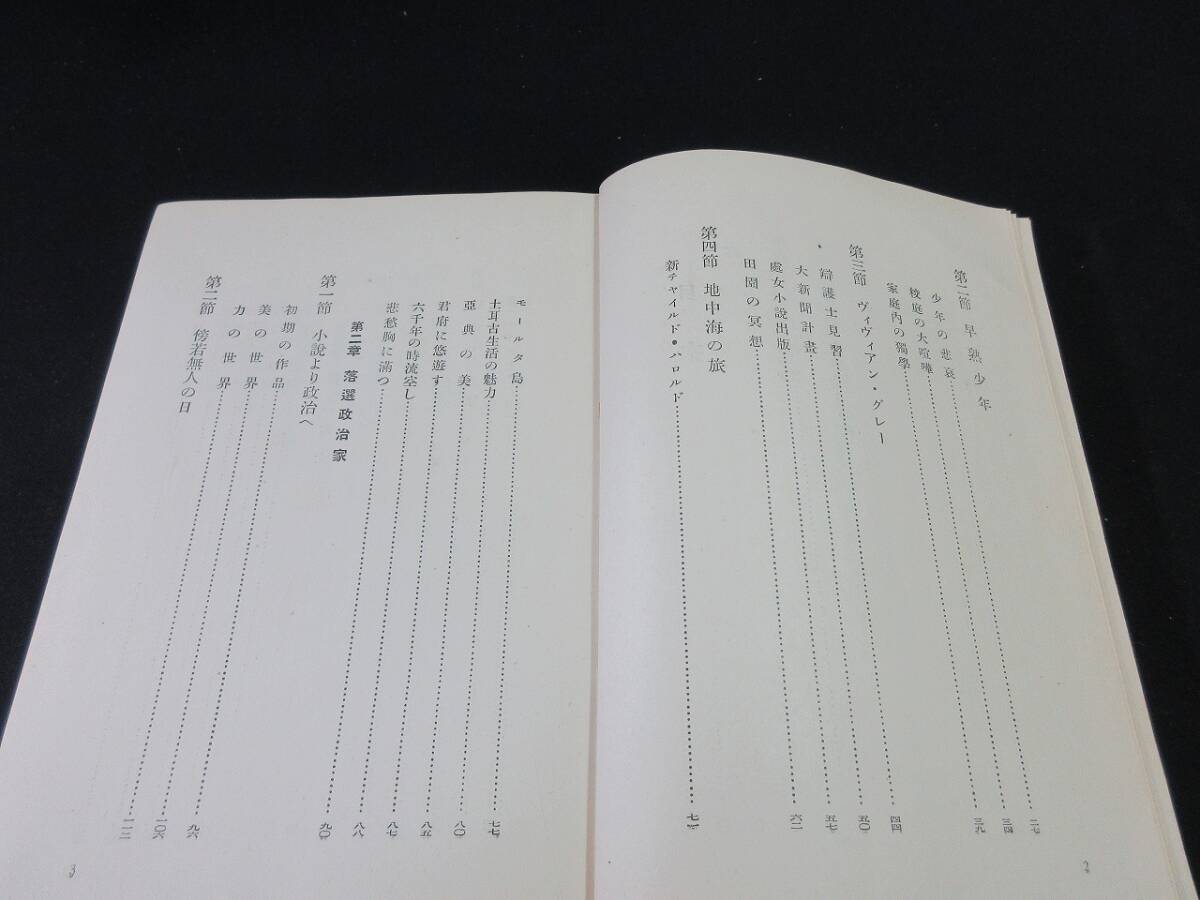 第二節 早熟少年
少年の悲哀……二七
校庭の大喧嘩……三四
家庭內の獨學……三九
第三節 ヴィヴィアン・グレー
辯護士見習……四四
大新聞計畫……五〇
處女小說出版……五七
田園の冥想……六二
第四節 地中海の旅
新チャイルド・ハロルド……七一
2
モールタ島……七七
土耳古生活の魅力……八〇
亞典の美……八五
君府に悠遊す……八七
六千年の時流空し……八八
悲愁胸に滿つ……九〇
第二章 落選政治家
第一節 小說より政治へ
初期の作品……九六
美の世界……一〇六
力の世界……一一二
第二節 傍若無人の日
3